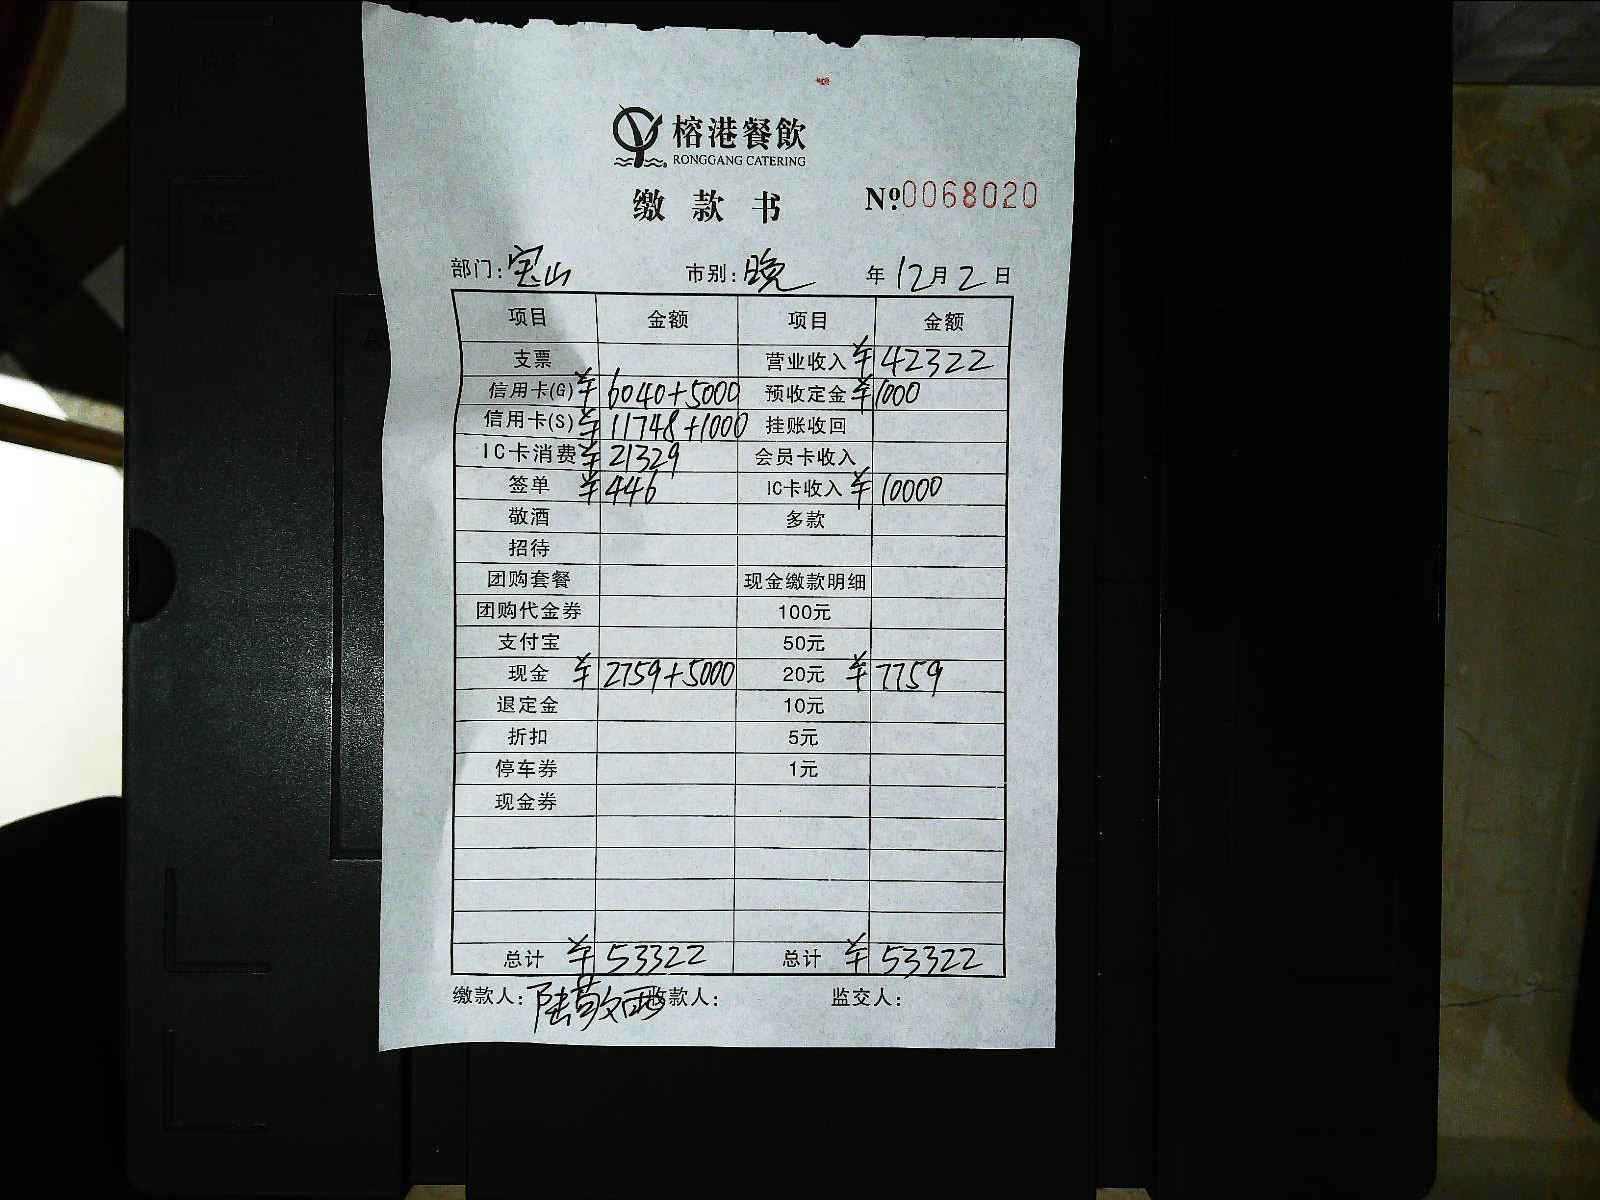 榕港餐飲
RONGGANG CATERING
缴款书 №0068020
部门:宝山 市别:晚 年12月2日
项目 金额 项目 金额
支票 营业收入 ¥42322
信用卡(G) ¥6040+5000 预收定金 ¥1000
信用卡(S) ¥11748+1000 挂账收回
IC卡消费 ¥21329 会员卡收入
签单 ¥446 IC卡收入 ¥10000
敬酒 多款
招待
团购套餐 现金缴款明细
团购代金券 100元
支付宝 50元
现金 ¥2759+5000 20元 ¥7759
退定金 10元
折扣 5元
停车券 1元
现金券
总计 ¥53322 总计 ¥53322
缴款人:陆敬西 收款人: 监交人:
A4
A5